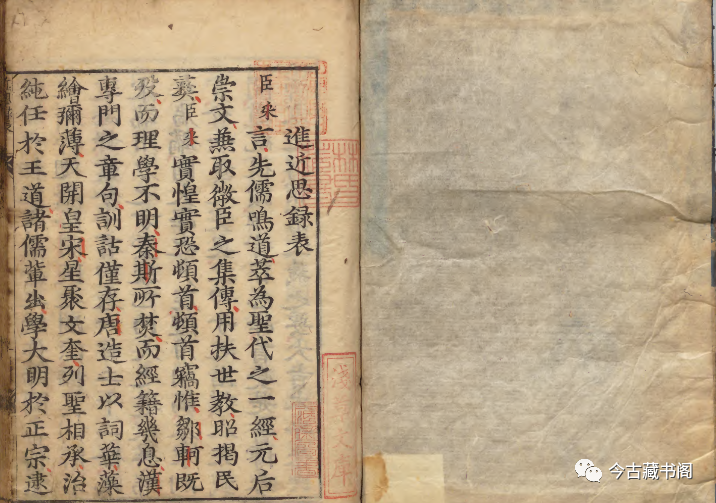 進近思録表
臣采言先儒鳴道萃為聖代之一經元后
崇文兼取微臣之集傳用扶世教昭揭民
彝臣采實惶實恐頓首頓首竊惟鄒軻既
歿而理學不明秦斯所焚而經籍幾息漢
專門之章句訓詁僅存唐造士以詞華藻
繪彌薄天開皇宋星聚文奎列聖相承治
純任於王道諸儒輩出學大明於正宗逮
淺草文庫
今古藏书阁